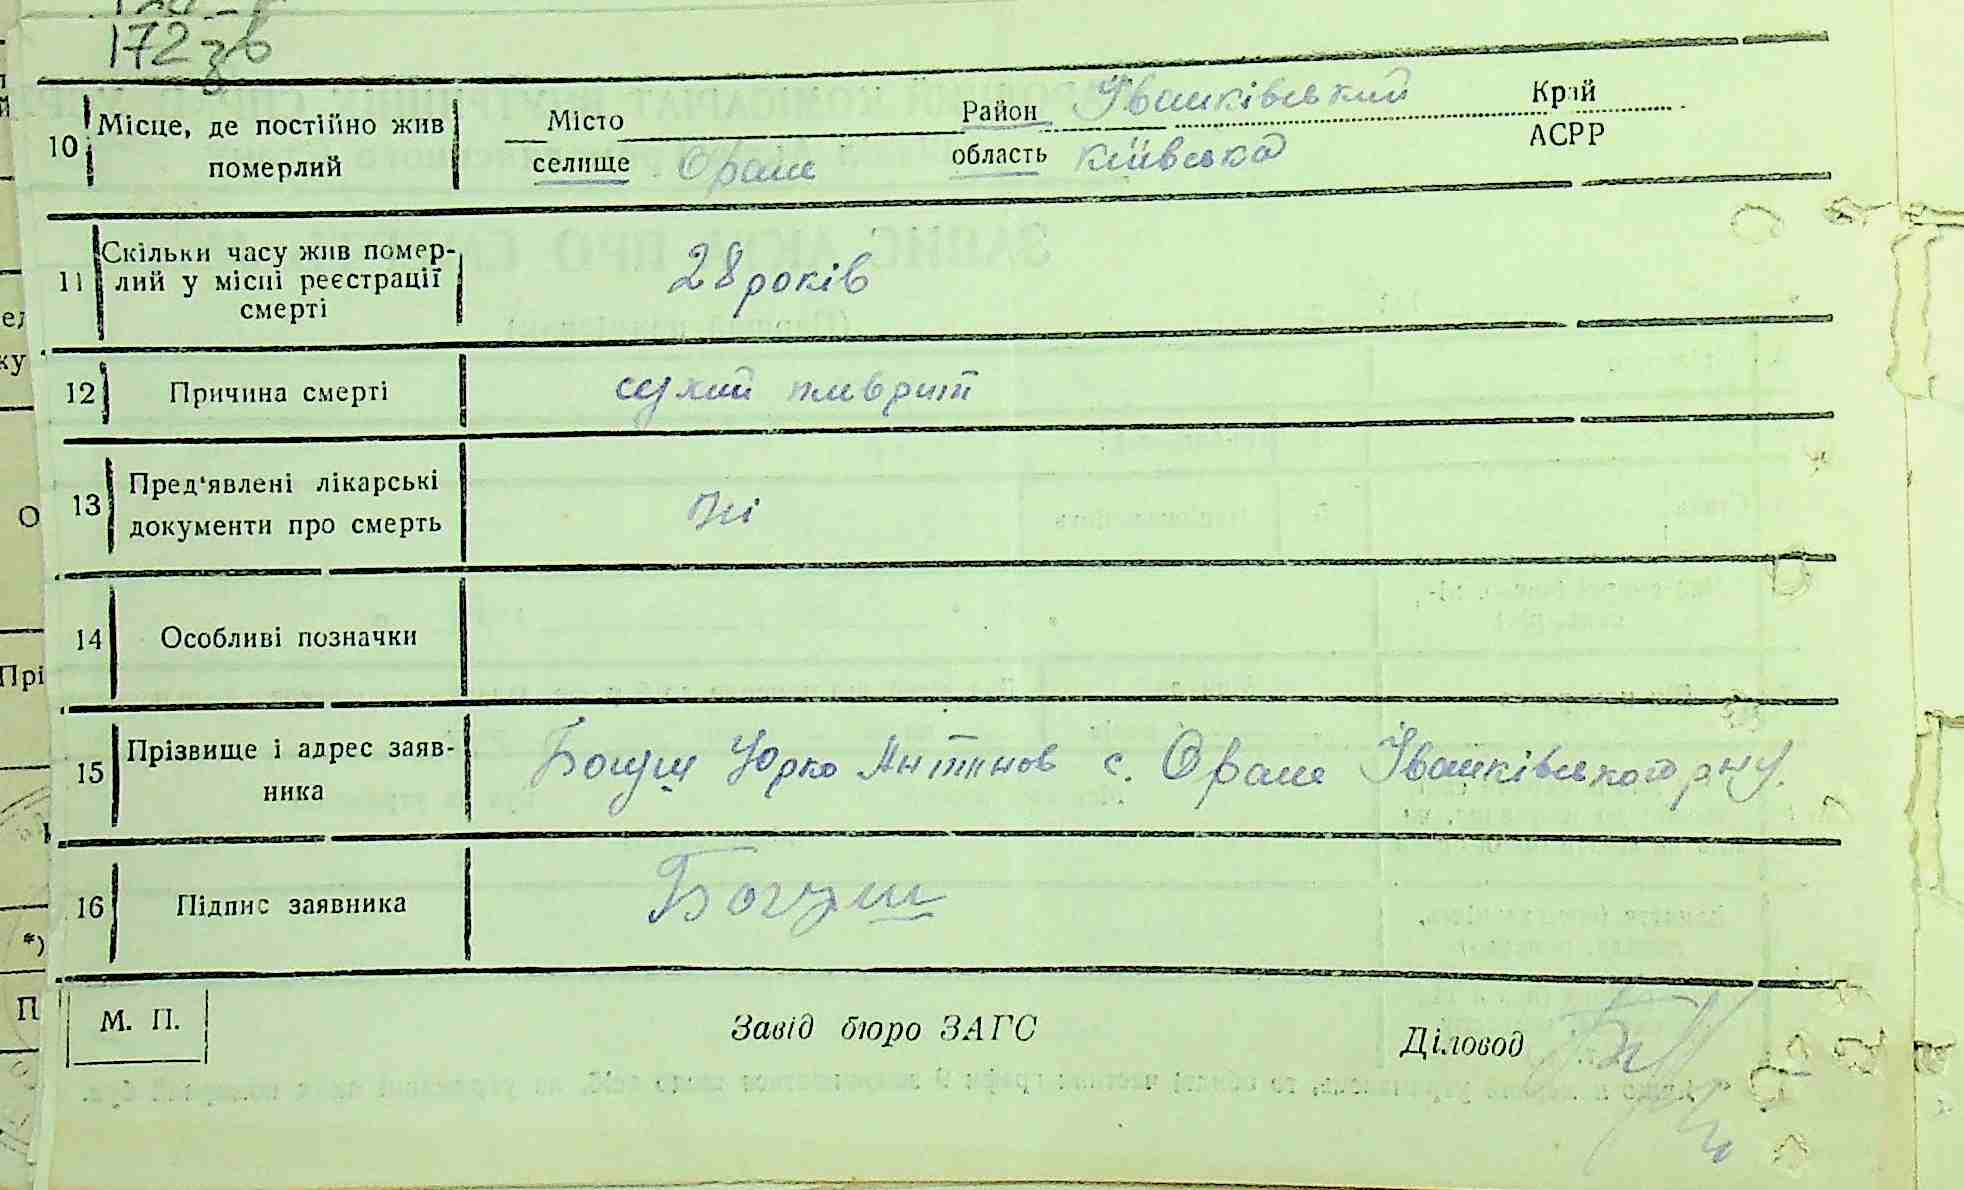 172 зв
10 Місце, де постійно жив померлий Місто селище Оране Район Іванківський область Київська Край АСРР
11 Скільки часу жив помер-
лий у місці реєстрації
смерті 28 років
12 Причина смерті сухий плеврит
13 Пред'явлені лікарські
документи про смерть Ні
14 Особливі позначки
15 Прізвище і адрес заяв-
ника Богуш Юрко Антонов с. Оране Іванківського р-ну.
16 Підпис заявника Богуш
М. П. Завід бюро ЗАГС Діловод